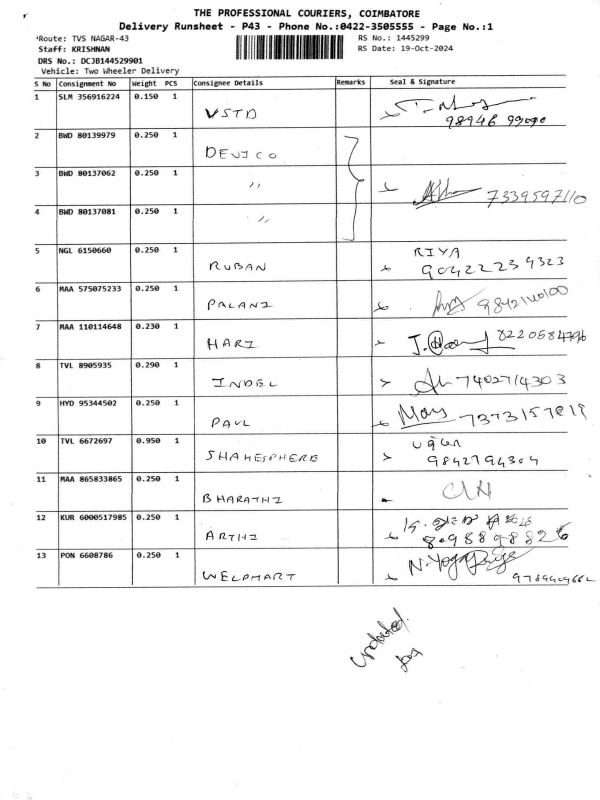 THE PROFESSIONAL COURIERS, COIMBATORE
Delivery Runsheet - P43 - Phone No.:0422-3505555 - Page No.:1
*Route: TVS NAGAR-43 RS No.: 1445299
Staff: KRISHNAN RS Date: 19-Oct-2024
DRS No.: DCJB144529901
Vehicle: Two Wheeler Delivery
S No Consignment No Weight PCS Consignee Details Remarks Seal & Signature
1 SLM 356916224 0.150 1
VSTD
98946
2 BWD 80139979 0.250 1
DEVICO
3 BWD 80137062 0.250 1
,, 7339597110
4 BWD 80137081 0.250 1
,,
5 NGL 6150660 0.250 1 RIYA
RUBAN 9042223 4323
6 MAA 575075233 0.250 1
PALANI
7 MAA 110114648 0.230 1
HARI J. Hari
8 TVL 8905935 0.290 1
INDEL 7402714303
9 HYD 95344502 0.250 1
PAUL
10 TVL 6672697 0.950 1
SHAKESPHERE 9842794304
11 MAA 865833865 0.250 1
BHARATHI
12 KUR 6000517985 0.250 1
ARTHI 8098898826
13 PON 6608786 0.250 1
WELPMART
Updated